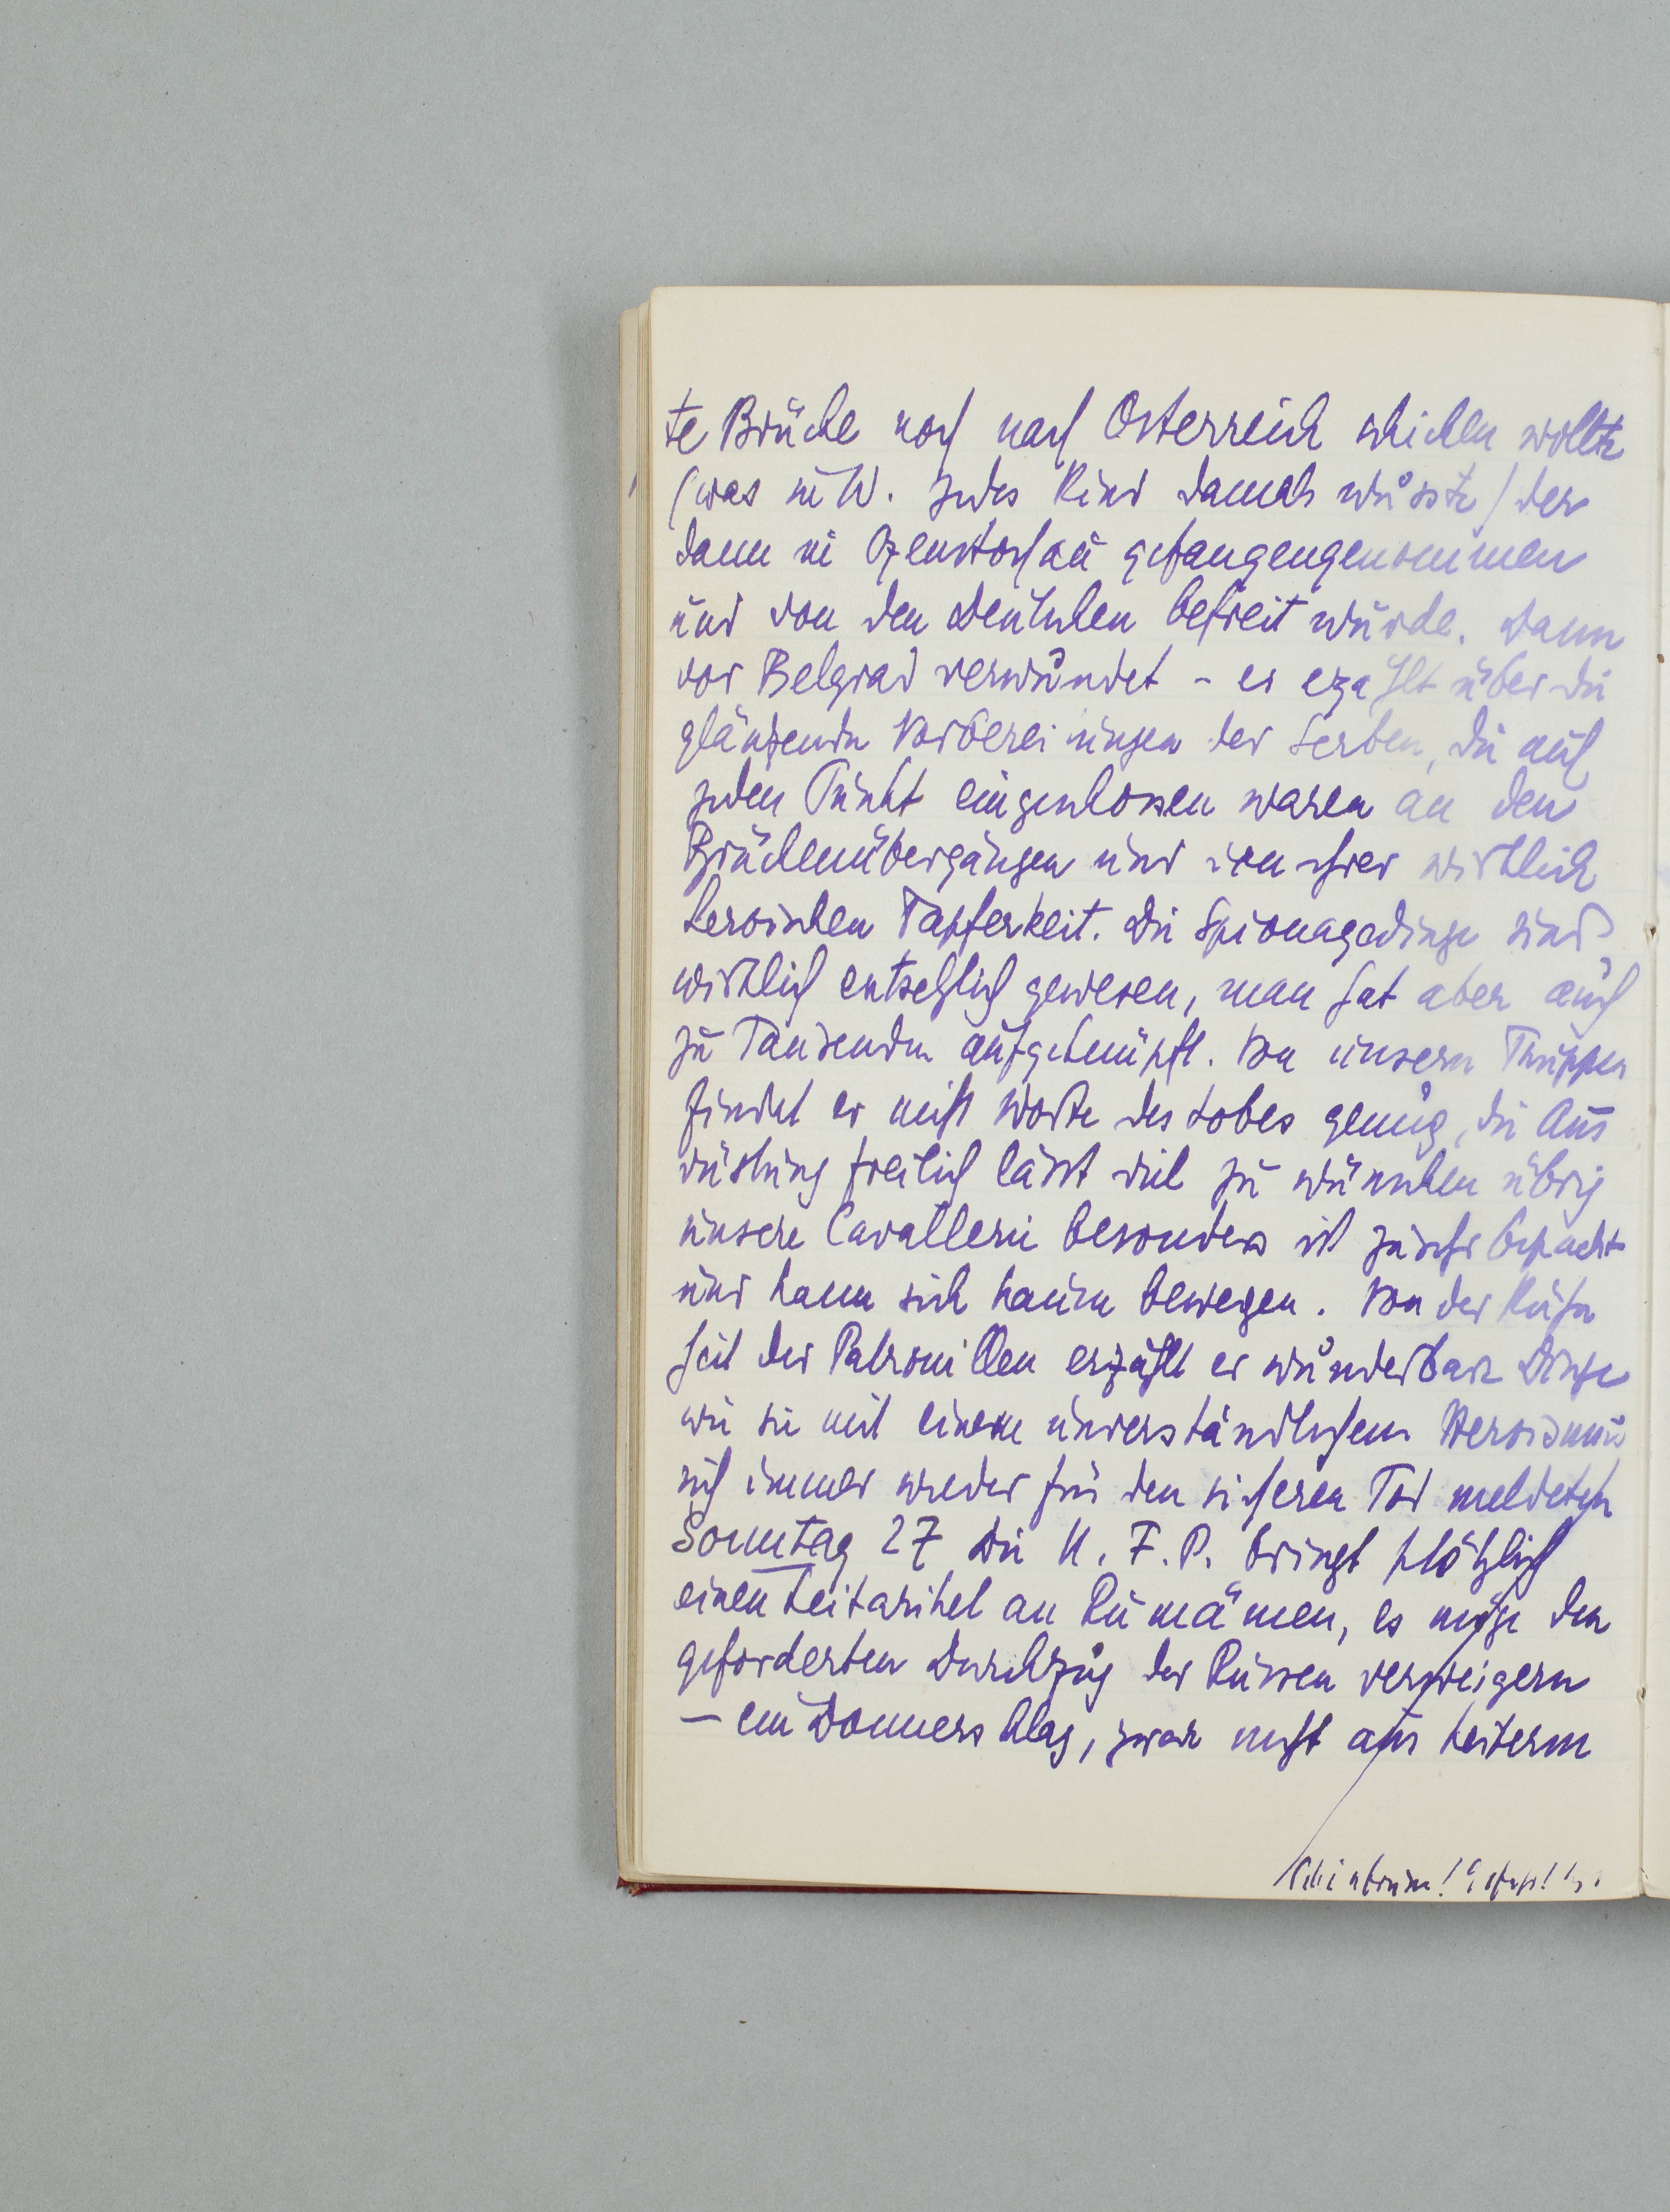 te Brücke noch nach Österreich schicken wollte
(was in W. jedes Kind damals wusste) der
dann in Czenstochau gefangengenommen
und von den Deutschen befreit wurde. Dann
vor Belgrad verwundet – er ezählt über die
glänzenden Vorbereiungen der Serben, die auf
jeden Punkt eingeschossen waren an den
Brückenübergängen und von ihrer wirklich
heroischen Tapferkeit. Die Spionagedinge sind
wirklich entsetzlich gewesen, man hat aber auch
zu Tausenden aufgeknüpft. Von unsern Truppen
findet er nicht Worte des Lobes genug, die Aus
rüstung freilich lässt viel zu wünschen übrig
unsere Cavallerie besonders ist zu sehr bepackt
und kann sich kaum bewegen. Von der Kühn
heit der Patrouillen erzählt er wunderbare Dinge
wie sie mit einem unverständlichem Heroismus
sich immer wieder für den sicheren Tod meldeten
Sonntag 27 Die N. F. P. bringt plötzlich
einen Leitartikel an Rumänien, es möge den
geforderten Durchzug der Russen verweigern
– ein Donnerschlag, zwar nicht aus heiterm